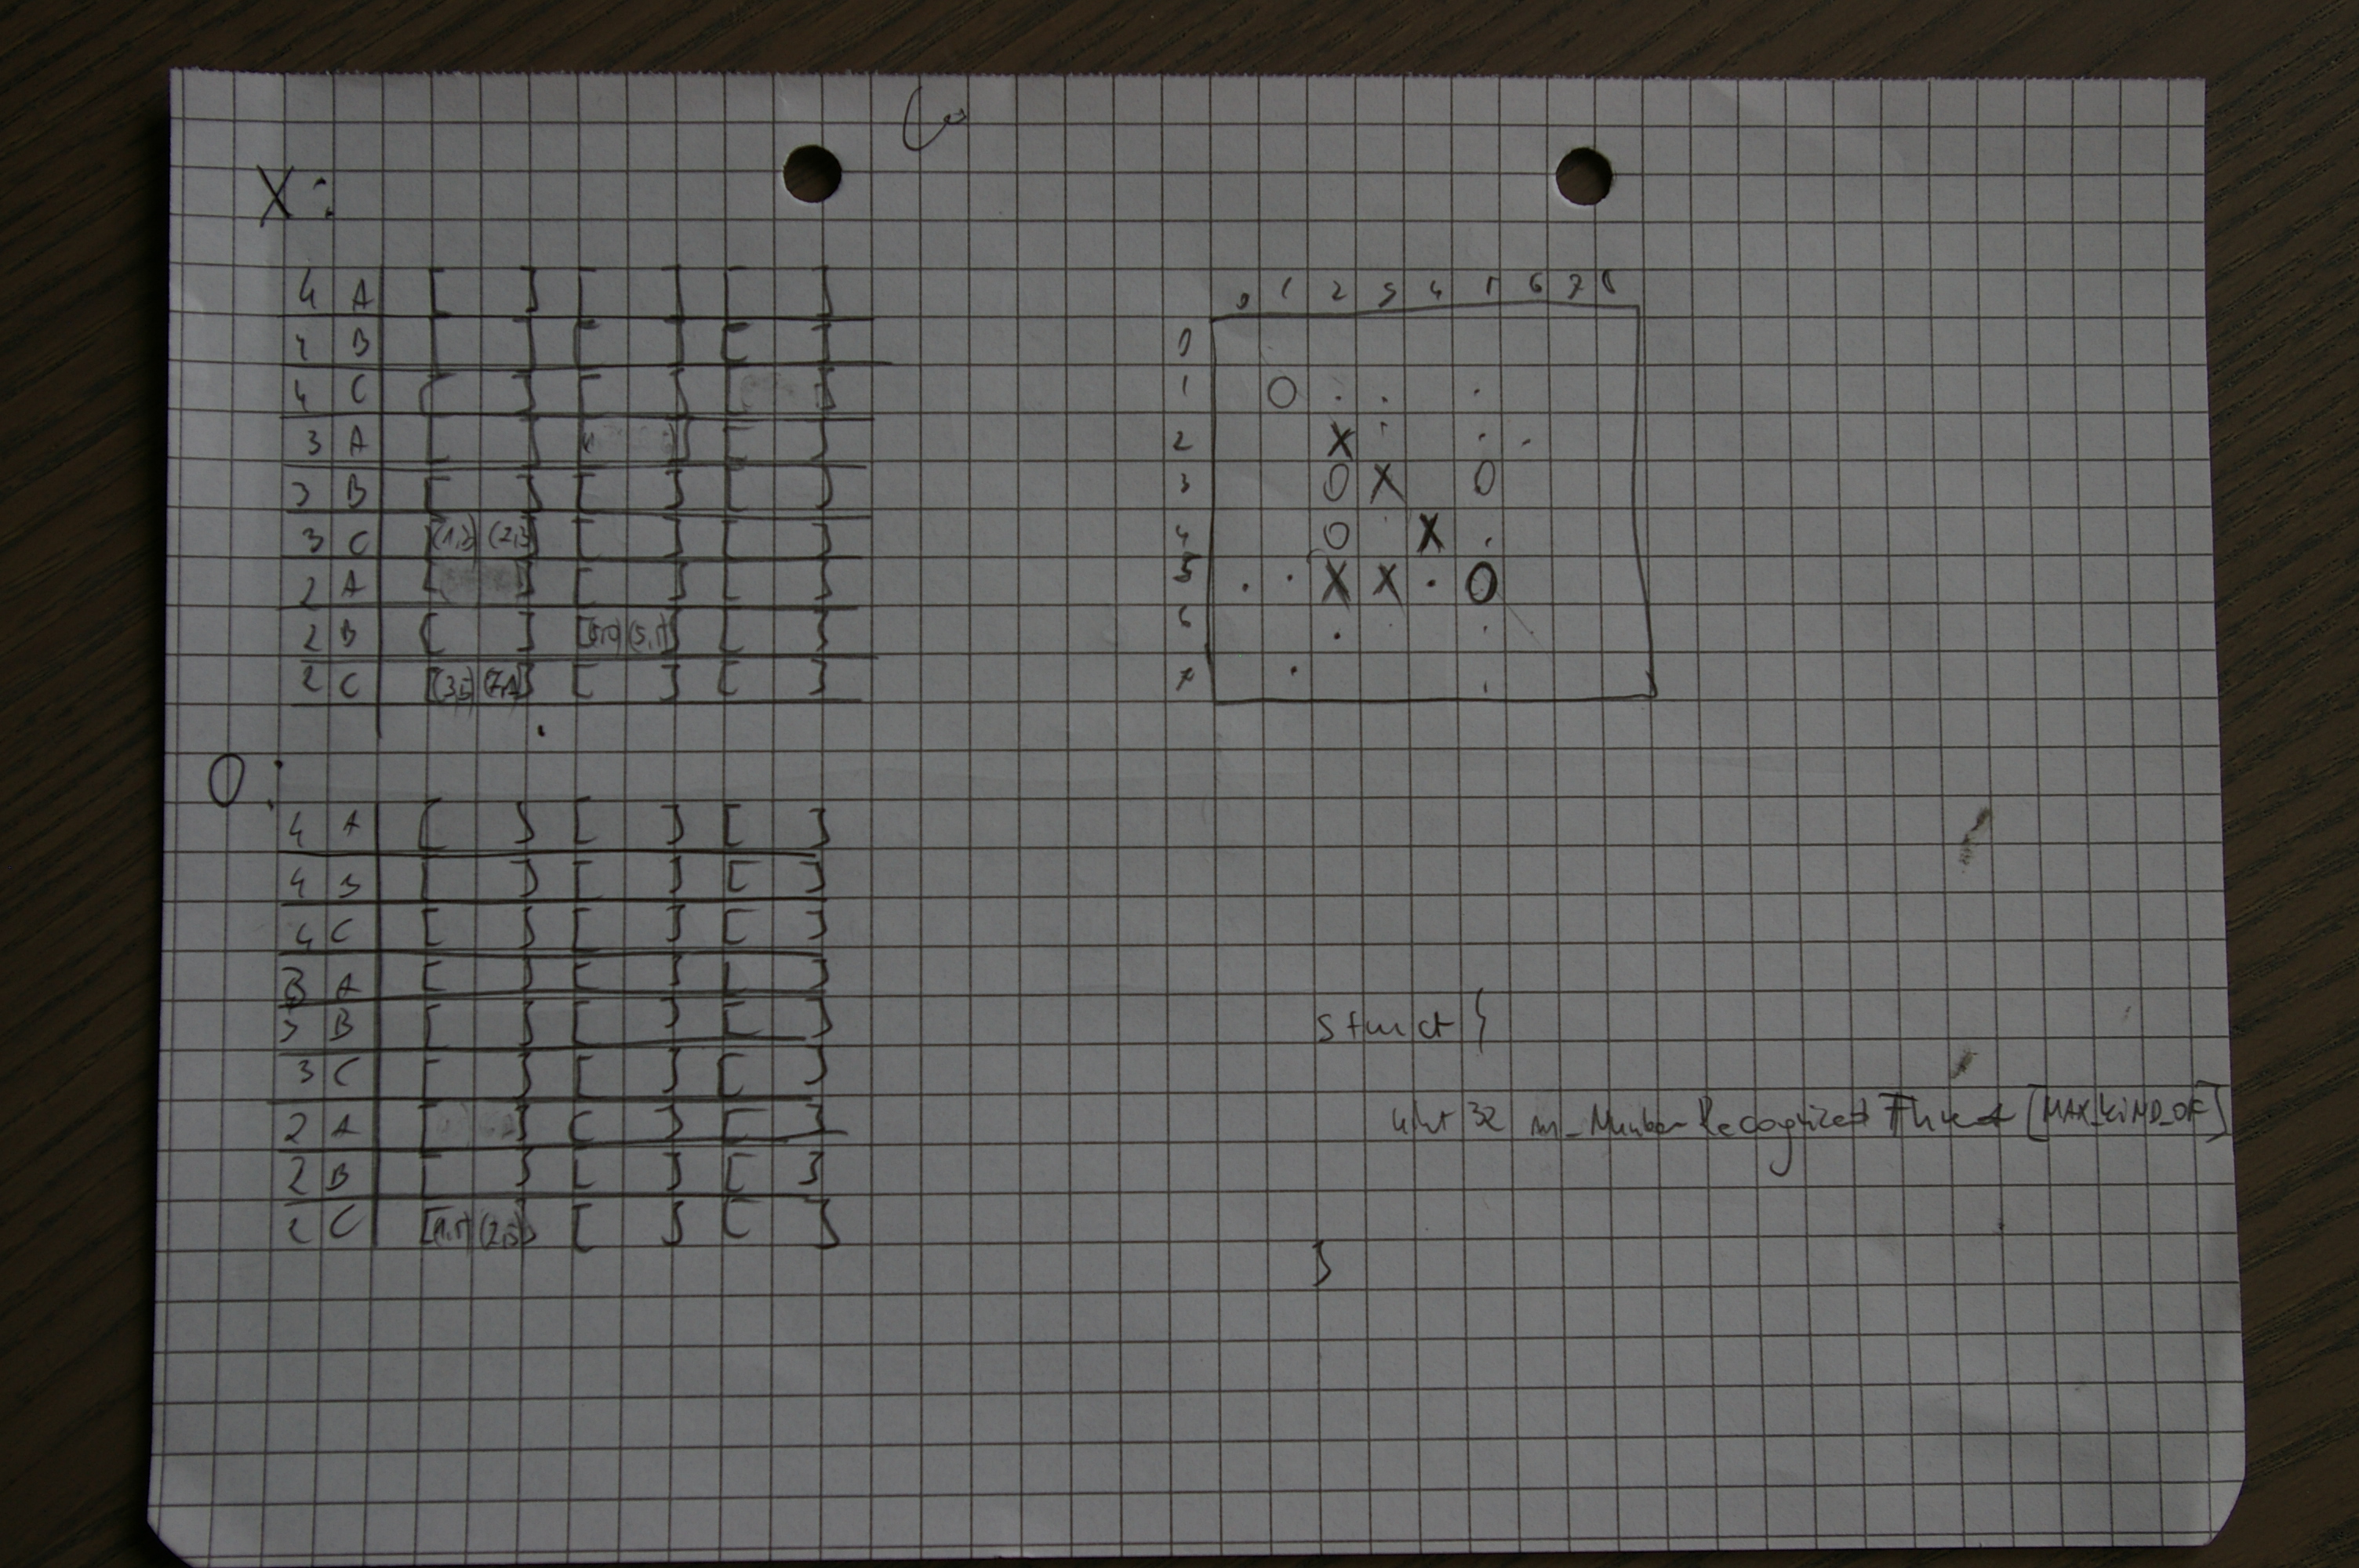 X:
4 A [ ] [ ] [ ]
4 B [ ] [ ] [ ]
4 C [ ] [ ] [ ]
3 A [ ] [ ] [ ]
3 B [ ] [ ] [ ]
3 C [ (2,3) ] [ ] [ ]
2 A [ ] [ ] [ ]
2 B [ ] [(5,0) (5,1)] [ ]
2 C [(3,5) (7,1)] [ ] [ ]
O:
4 A [ ] [ ] [ ]
4 B [ ] [ ] [ ]
4 C [ ] [ ] [ ]
3 A [ ] [ ] [ ]
3 B [ ] [ ] [ ]
3 C [ ] [ ] [ ]
2 A [ ] [ ] [ ]
2 B [ ] [ ] [ ]
2 C [(1,5) (2,5)] [ ] [ ]
0 1 2 3 4 5 6 7 8
0
1 O . . .
2 X . . .
3 O X O
4 O X .
5 . . X X . O
6 . .
7 . .
struct {
uint 32 m_NumberRecognizedThreat [MAX_KIND_OF]
}